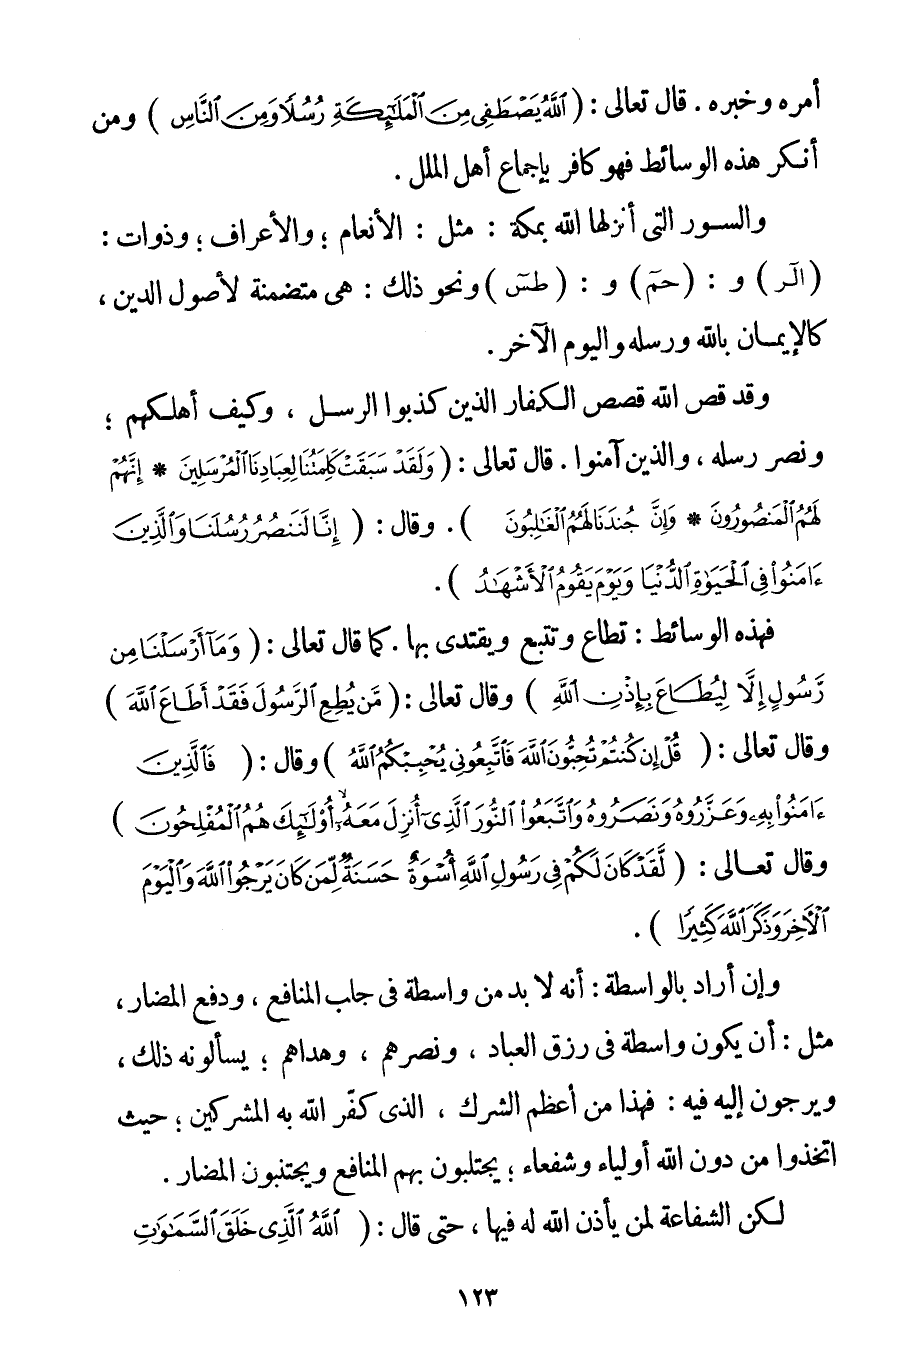 أمره وخبره . قال تعالى : ( ٱللَّهُ يَصْطَفِى مِنَ ٱلْمَلَٰٓئِكَةِ رُسُلًا وَمِنَ ٱلنَّاسِ ) ومن
أنكر هذه الوسائط فهو كافر بإجماع أهل الملل .
والسور التى أنزلها الله بمكة : مثل : الأنعام ؛ والأعراف ؛ وذوات :
( الٓر ) و : ( حمٓ ) و : ( طسٓ ) ونحو ذلك : هى متضمنة لأصول الدين ،
كالإيمان بالله ورسله واليوم الآخر .
وقد قص الله قصص الكفار الذين كذبوا الرسل ، وكيف أهلكهم ؛
ونصر رسله ، والذين آمنوا . قال تعالى : ( وَلَقَدْ سَبَقَتْ كَلِمَتُنَا لِعِبَادِنَا ٱلْمُرْسَلِينَ * إِنَّهُمْ
لَهُمُ ٱلْمَنصُورُونَ * وَإِنَّ جُندَنَا لَهُمُ ٱلْغَٰلِبُونَ ) . وقال : ( إِنَّا لَنَنصُرُ رُسُلَنَا وَٱلَّذِينَ
ءَامَنُوا۟ فِى ٱلْحَيَوٰةِ ٱلدُّنْيَا وَيَوْمَ يَقُومُ ٱلْأَشْهَٰدُ ) .
فهذه الوسائط : تطاع وتتبع ويقتدى بها . كما قال تعالى : ( وَمَآ أَرْسَلْنَا مِن
رَّسُولٍ إِلَّا لِيُطَاعَ بِإِذْنِ ٱللَّهِ ) وقال تعالى : ( مَّن يُطِعِ ٱلرَّسُولَ فَقَدْ أَطَاعَ ٱللَّهَ )
وقال تعالى : ( قُلْ إِن كُنتُمْ تُحِبُّونَ ٱللَّهَ فَٱتَّبِعُونِى يُحْبِبْكُمُ ٱللَّهُ ) وقال : ( فَٱلَّذِينَ
ءَامَنُوا۟ بِهِۦ وَعَزَّرُوهُ وَنَصَرُوهُ وَٱتَّبَعُوا۟ ٱلنُّورَ ٱلَّذِىٓ أُنزِلَ مَعَهُۥٓ ۙ أُو۟لَٰٓئِكَ هُمُ ٱلْمُفْلِحُونَ )
وقال تعالى : ( لَّقَدْ كَانَ لَكُمْ فِى رَسُولِ ٱللَّهِ أُسْوَةٌ حَسَنَةٌ لِّمَن كَانَ يَرْجُوا۟ ٱللَّهَ وَٱلْيَوْمَ
ٱلْأَخِرَ وَذَكَرَ ٱللَّهَ كَثِيرًا ) .
وإن أراد بالواسطة : أنه لا بد من واسطة فى جلب المنافع ، ودفع المضار ،
مثل : أن يكون واسطة فى رزق العباد ، ونصرهم ، وهداهم ؛ يسألونه ذلك ،
ويرجون إليه فيه : فهذا من أعظم الشرك ، الذى كفّر الله به المشركين ؛ حيث
اتخذوا من دون الله أولياء وشفعاء ؛ يجتلبون بهم المنافع ويجتنبون المضار .
لكن الشفاعة لمن يأذن الله له فيها ، حتى قال : ( ٱللَّهُ ٱلَّذِى خَلَقَ ٱلسَّمَٰوَٰتِ
١٢٣